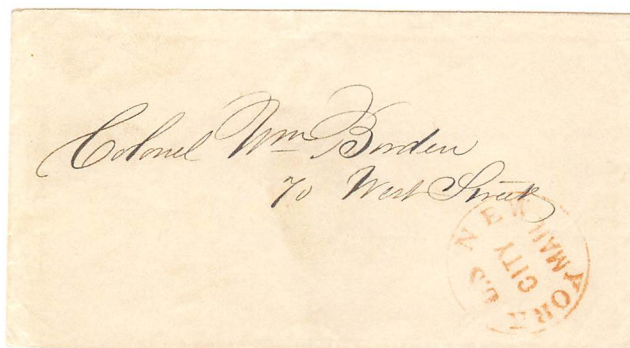 Colonel Wm Borden
70 West Street
NEW YORK
U.S
CITY
MAIL